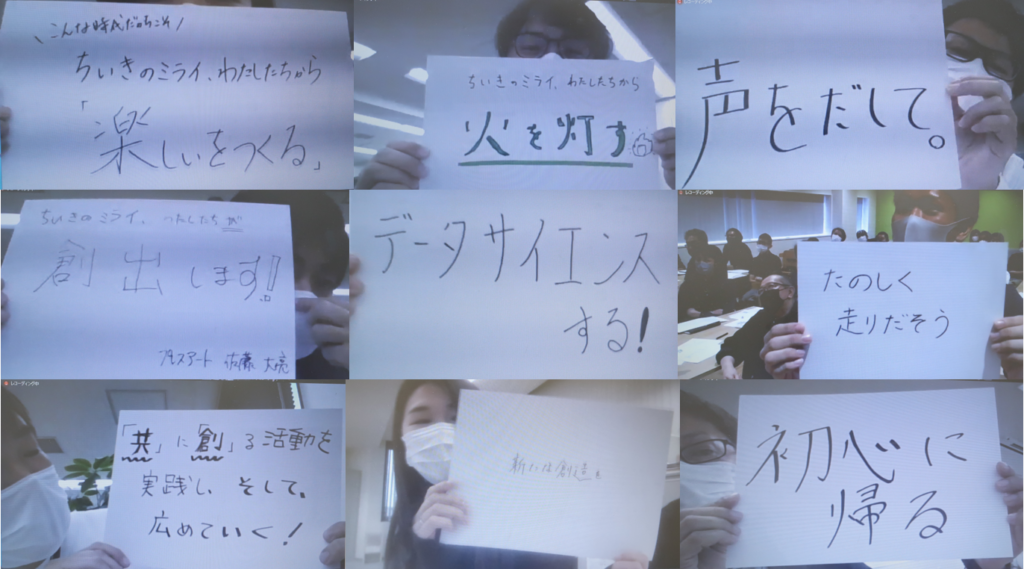 こんな時代だからこそ
ちいきのミライ、わたしたちから
「楽しいをつくる」
ちいきのミライ、わたしたちから
火を灯す
声をだして。
ちいきのミライ、わたしたちが
創出します!!
プレスアート 佐藤 大亮
データサイエンス
する!
たのしく
走りだそう
「共」に「創」る活動を
実践し、そして、
広めていく!
新たな創造を
初心に
帰る